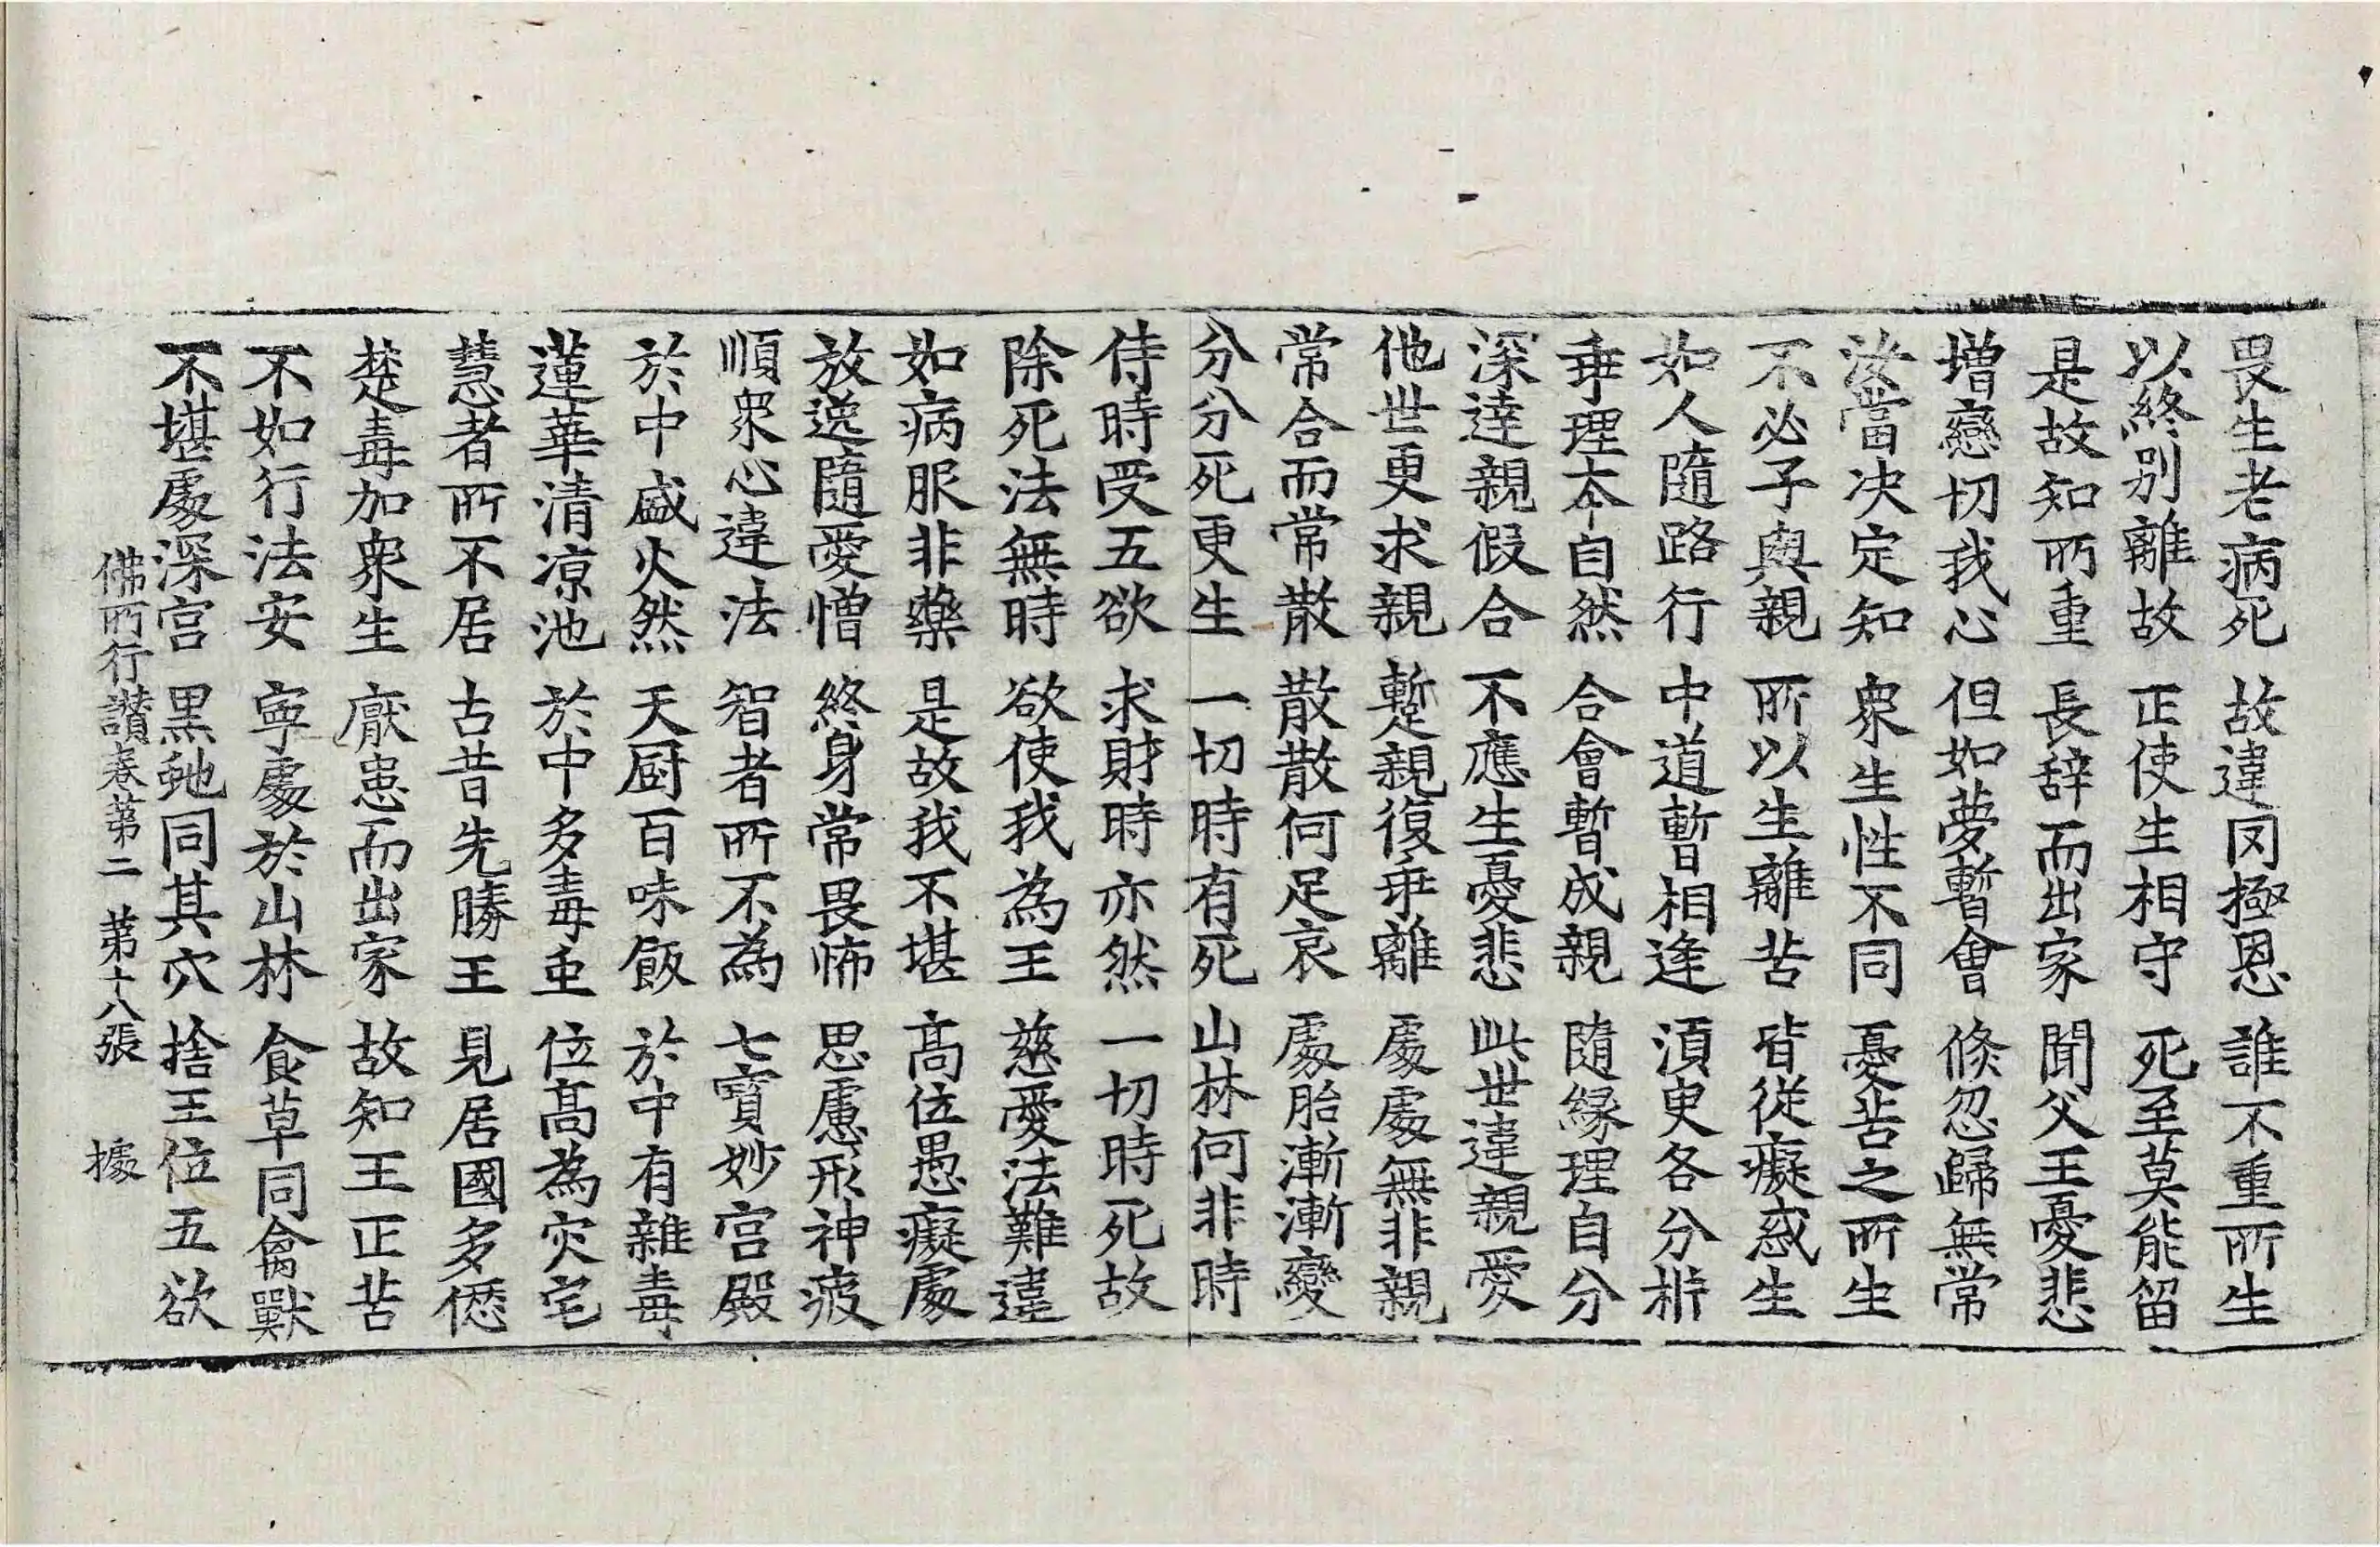 畏生老病死 故違罔極恩 誰不重所生
以終別離故 正使生相守 死至莫能留
是故知所重 長辞而出家 聞父王憂悲
增戀切我心 但如夢暫會 倏忽歸無常
汝當決定知 衆生性不同 憂苦之所生
不必子與親 所以生離苦 皆從癡惑生
如人隨路行 中道暫相逢 須臾各分析
乖理本自然 合會暫成親 隨緣理自分
深達親假合 不應生憂悲 此世違親愛
他世更求親 蹔親復乖離 處處無非親
常合而常散 散散何足哀 處胎漸漸變
分分死更生 一切時有死 山林何非時
侍時受五欲 求財時亦然 一切時死故
除死法無時 欲使我為王 慈愛法難違
如病服非藥 是故我不堪 高位愚癡處
放逸隨愛憎 終身常畏怖 思慮形神疲
順衆心違法 智者所不為 七寶妙宮殿
於中盛火然 天厨百味飯 於中有雜毒
蓮華清涼池 於中多毒虫 位髙為灾宅
慧者所不居 古昔先勝王 見居國多愆
楚毒加衆生 厭患而出家 故知王正苦
不如行法安 寧處於山林 食草同禽獸
不堪處深宮 黑虵同其穴 捨王位五欲
佛所行讃卷第二 第十八張 據